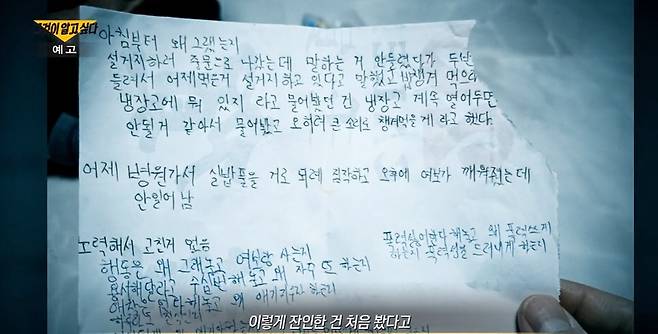 것이 알고 싶다
예고
아침부터 왜 그랬는지
설거지하러 주방으로 나갔는데 말하는 거 안들렸다가 두번
들려서 어제먹은거 설거지하고 있다고 말했고 밥챙겨 먹으라
냉장고에 뭐 있지 라고 물어봤던 건 냉장고 계속 열어두면
안될거 같아서 물어봤고 오히려 큰 소리로 챙겨먹을게 라고 했다.
어제 병원가서 실밥풀을 거로 되레 짐작하고 오후에 여보가 깨워줬는데
안일어남
노력해서 고친거 없음
폭력싫어한다 해놓고 왜 폭력쓰게
하는지 폭력성을 드러내게 하는지
행동은 왜 그래놓고 여보랑 사는지
용서해달라고 수십번 해놓고 왜 자꾸 또 하는지
해놓고 왜
이렇게 잔인한 건 처음 봤다고